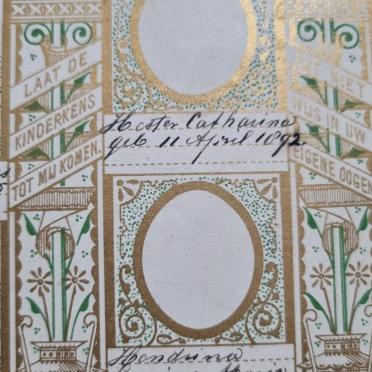 LAAT DE
KINDERKENS
TOT MIJ KOMEN.
Hester Catharina
geb. 11 April 1892
NIET
WIJS IN UW
EIGENE OOGEN
Hendrina
Maria